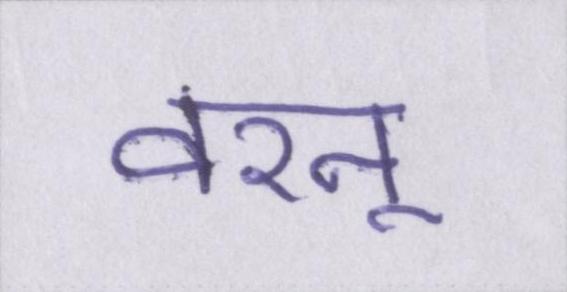 वरनू